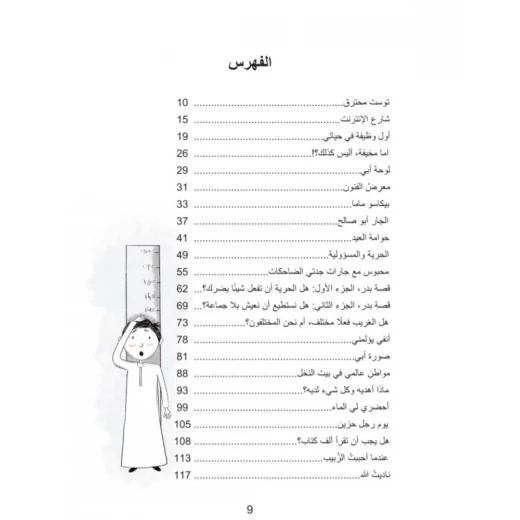 الفهرس
توست محترق.......................... 10
شارع الإنترنت.......................... 15
أول وظيفة في حياتي.......................... 19
اما مخيفة، أليس كذلك؟!.......................... 26
لوحة أبي.......................... 29
معرضُ الفنون.......................... 31
بيكاسو ماما.......................... 33
الجار أبو صالح.......................... 37
حوامة العيد.......................... 41
الحرية والمسؤولية.......................... 49
محبوس مع جارات جدتي الضاحكات.......................... 55
قصة بدر، الجزء الأول: هل الحرية أن تفعل شيئًا يضرك؟... 62
قصة بدر، الجزء الثاني: هل نستطيع أن نعيش بلا جماعة؟... 69
هل الغريب فعلًا مختلف، أم نحن المختلفون؟.......................... 73
أنفي يؤلمني.......................... 78
صورة أبي.......................... 81
مواطن عالمي في بيت النخل.......................... 88
ماذا أهديه وكل شيء لديه؟.......................... 93
أحضري لي الماء.......................... 99
يوم رجل حزين.......................... 105
هل يجب أن تقرأ ألف كتاب؟.......................... 108
عندما أحببتُ الزَّبيب.......................... 113
ناديتُ الله.......................... 117
١٥٠
١٤٥
9